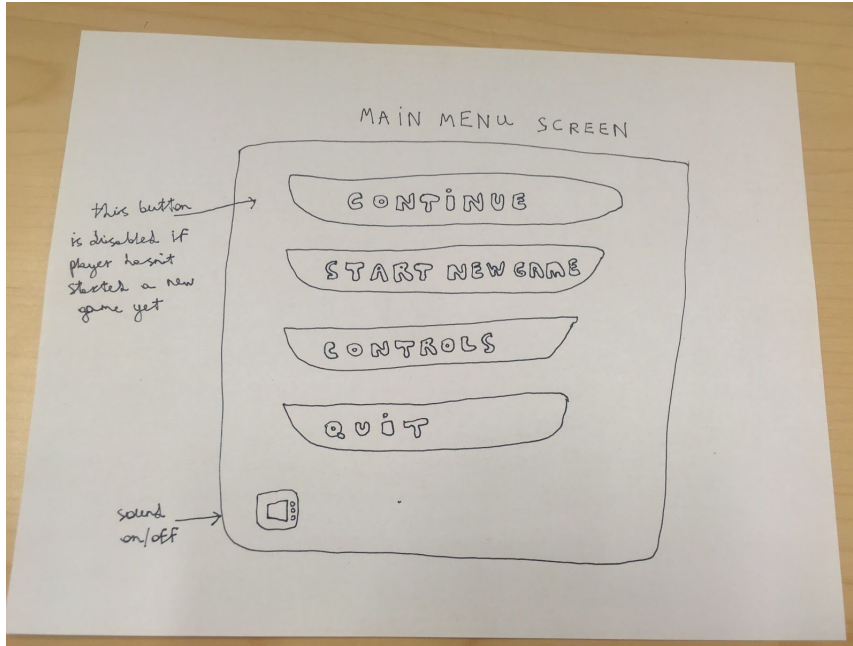 MAIN MENU SCREEN
CONTINUE
this button
is disabled if
player hasn't
started a new
game yet
START NEW GAME
CONTROLS
QUIT
sound
on/off